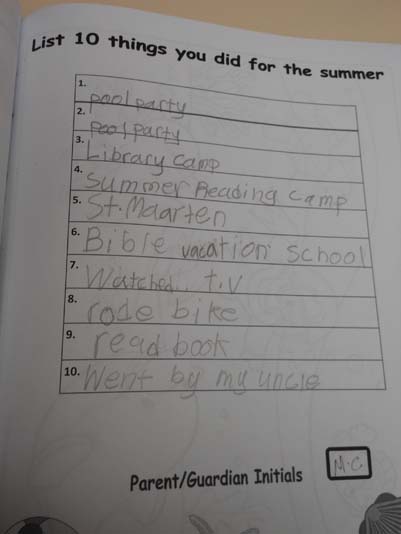 List 10 things you did for the summer
1. pool party
2. pool party
3. Library camp
4. Summer Reading camp
5. St. Maarten
6. Bible vacation school
7. Watched t.v
8. rode bike
9. read book
10. Went by my uncle
Parent/Guardian Initials M.C